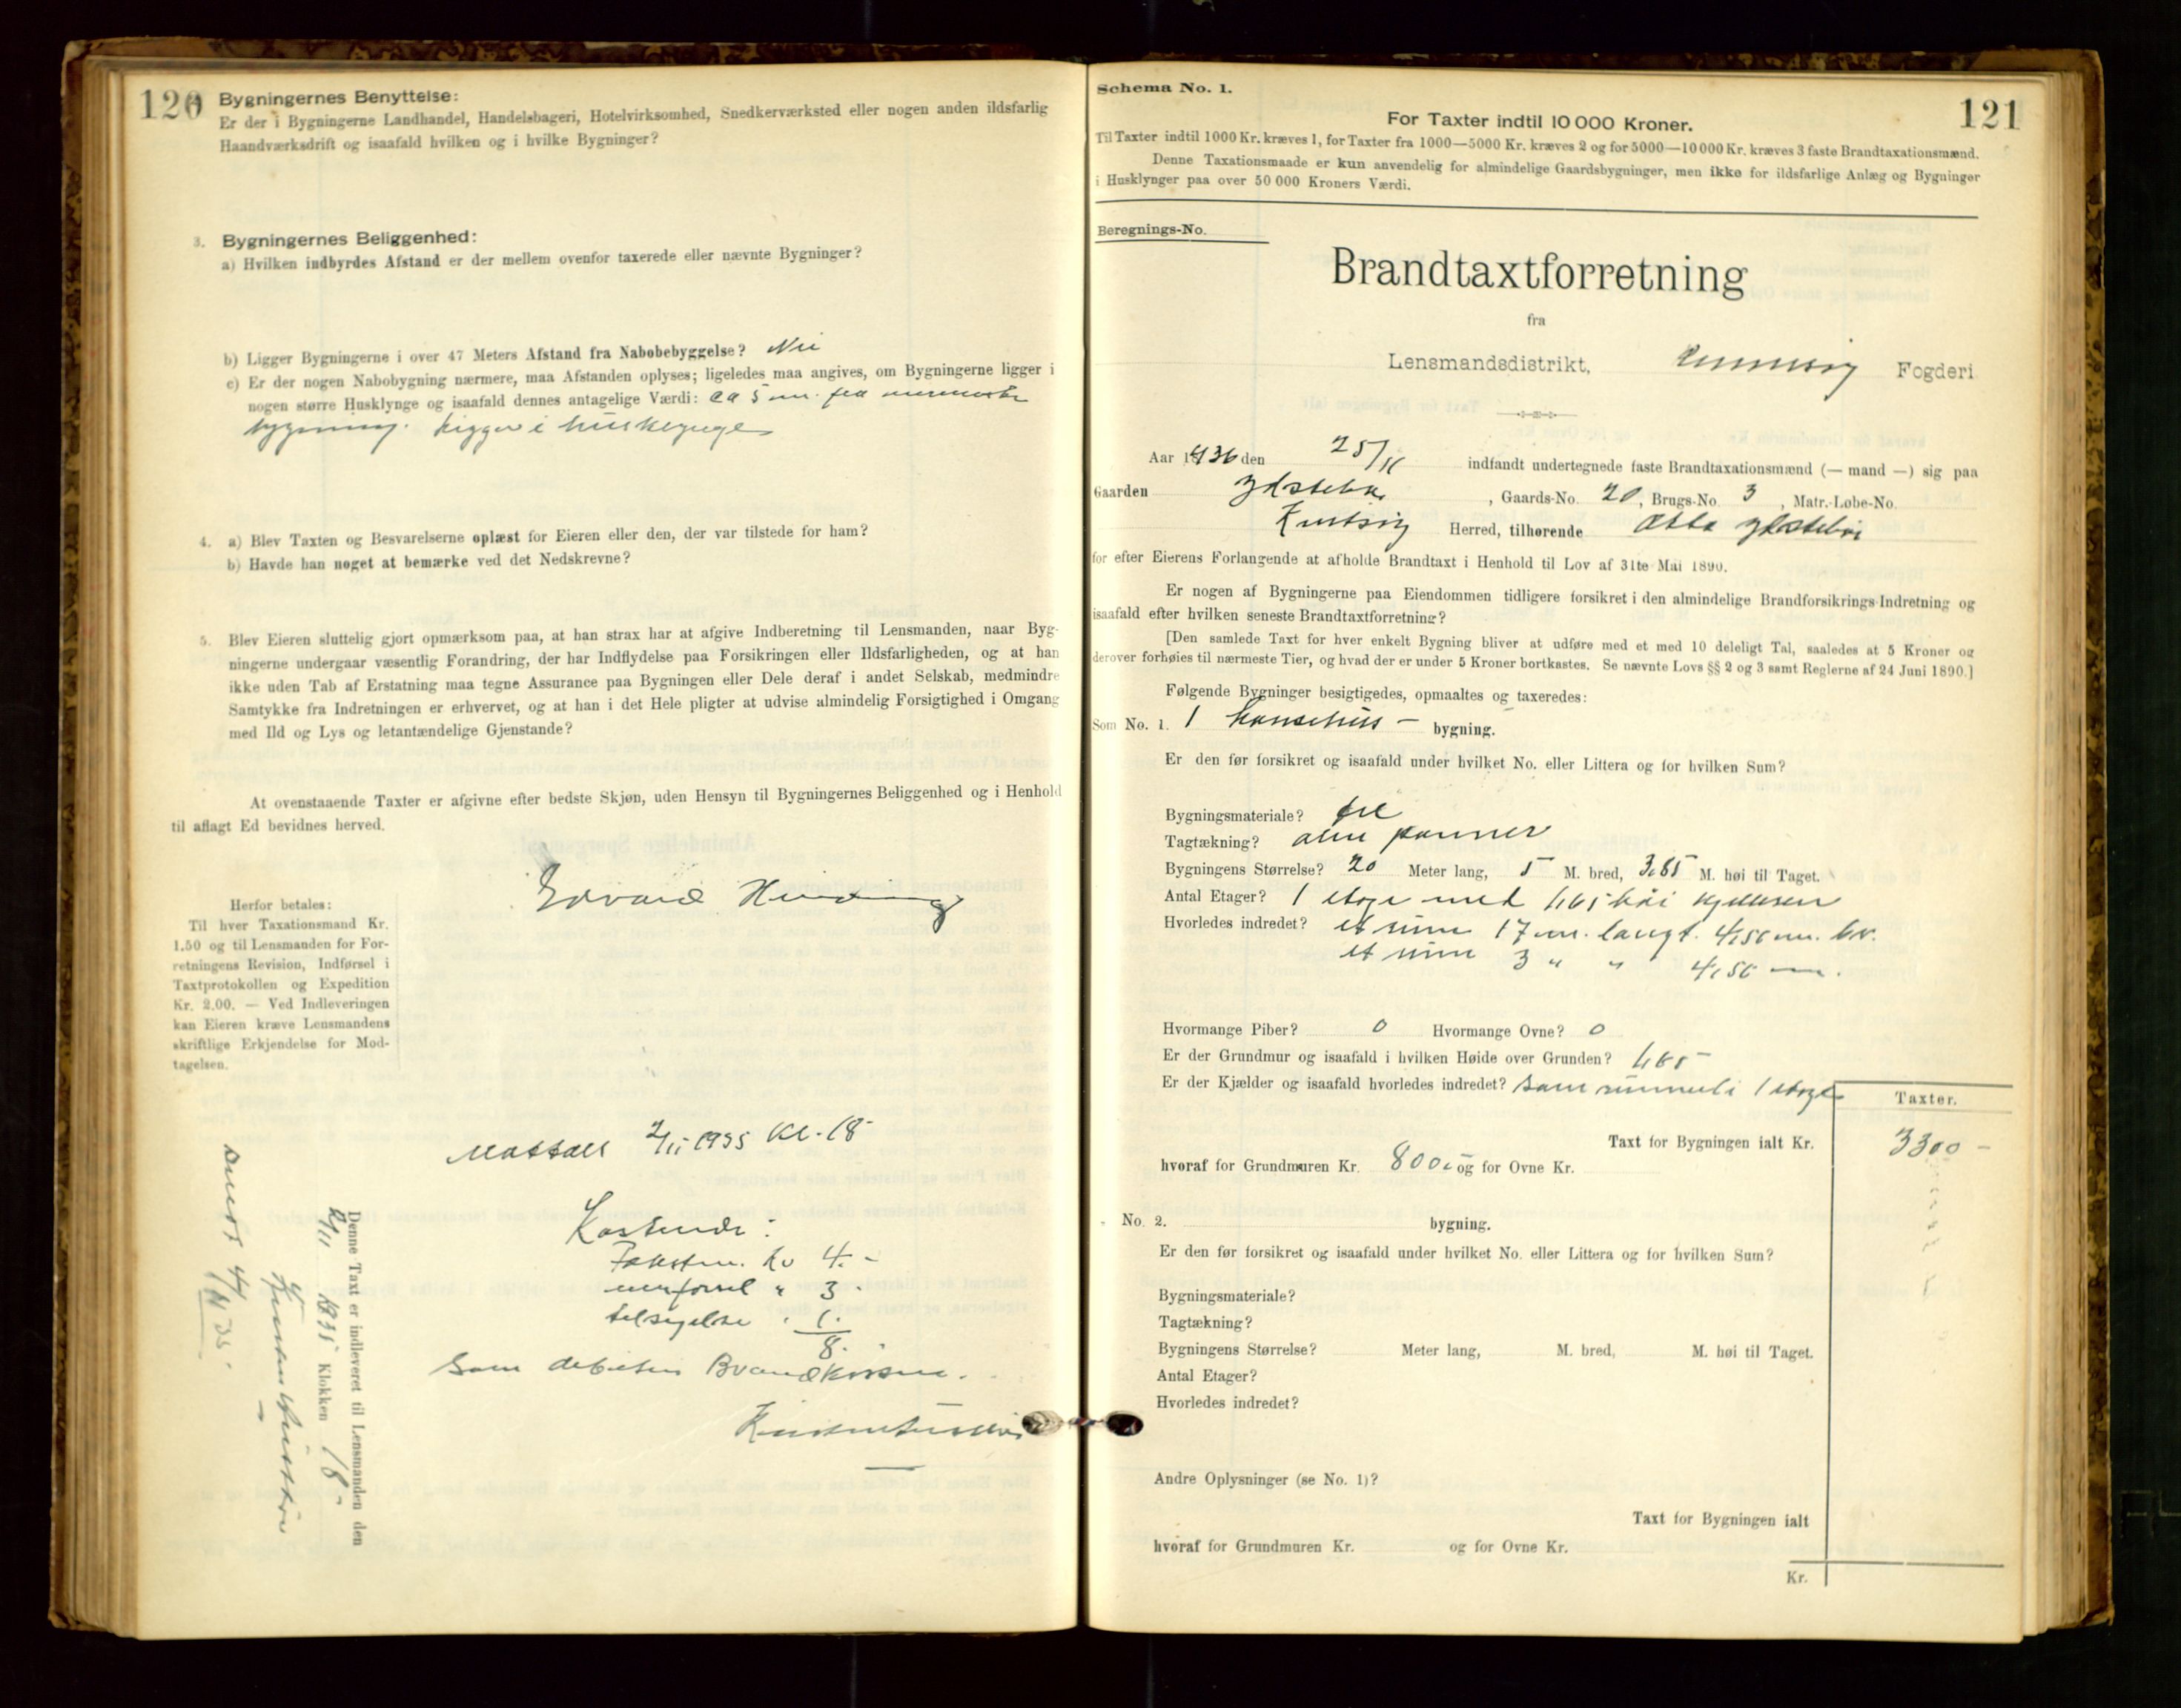 120
Bygningernes Benyttelse:
Er der i Bygningerne Landhandel, Handelsbageri, Hotelvirksomhed, Snedkerværksted eller nogen anden ildsfarlig
Haandværksdrift og isaafald hvilken og i hvilke Bygninger?
3. Bygningernes Beliggenhed:
a) Hvilken indbyrdes Afstand er der mellem ovenfor taxerede eller nævnte Bygninger?
b) Ligger Bygningerne i over 47 Meters Afstand fra Nabobebyggelse? Nei
c) Er der nogen Nabobygning nærmere, maa Afstanden oplyses; ligeledes maa angives, om Bygningerne ligger i
nogen større Husklynge og isaafald dennes antagelige Værdi: ca 5 m. fra nærmeste
bygning. Ligger i husklynge
4. a) Blev Taxten og Besvarelserne oplæst for Eieren eller den, der var tilstede for ham?
b) Havde han noget at bemærke ved det Nedskrevne?
5. Blev Eieren sluttelig gjort opmærksom paa, at han strax har at afgive Indberetning til Lensmanden, naar Byg-
ningerne undergaar væsentlig Forandring, der har Indflydelse paa Forsikringen eller Ildsfarligheden, og at han
ikke uden Tab af Erstatning maa tegne Assurance paa Bygningen eller Dele deraf i andet Selskab, medmindre
Samtykke fra Indretningen er erhvervet, og at han i det Hele pligter at udvise almindelig Forsigtighed i Omgang
med Ild og Lys og letantændelige Gjenstande?
At ovenstaaende Taxter er afgivne efter bedste Skjøn, uden Hensyn til Bygningernes Beliggenhed og i Henhold
til aflagt Ed bevidnes herved.
Edvard
Herfor betales:
Til hver Taxationsmand Kr.
1.50 og til Lensmanden for For-
retningens Revision, Indførsel i
Taxtprotokollen og Expedition
Kr. 2.00. — Ved Indleveringen
kan Eieren kræve Lensmandens
skriftlige Erkjendelse for Mod-
tagelsen.
Mottatt 2/11 1935 Kl. 18
Kostende:
Takstm. kr 4. -
3 -
1.
8.
Som debiteres Brandkassen.
Denne Taxt er indleveret til Lensmanden den
2/11 1935 Klokken 18
121
Schema No. 1.
For Taxter indtil 10 000 Kroner.
Til Taxter indtil 1000 Kr. kræves 1, for Taxter fra 1000—5000 Kr. kræves 2 og for 5000—10 000 Kr. kræves 3 faste Brandtaxationsmænd.
Denne Taxationsmaade er kun anvendelig for almindelige Gaardsbygninger, men ikke for ildsfarlige Anlæg og Bygninger
i Husklynger paa over 50 000 Kroners Værdi.
Beregnings-No.
Brandtaxtforretning
fra
Lensmandsdistrikt, Fogderi
Aar 1936 den 25/11 indfandt undertegnede faste Brandtaxationsmænd (— mand —) sig paa
Gaarden , Gaards-No. 20, Brugs-No. 3, Matr.-Løbe-No.
Herred, tilhørende
for efter Eierens Forlangende at afholde Brandtaxt i Henhold til Lov af 31te Mai 1890.
Er nogen af Bygningerne paa Eiendommen tidligere forsikret i den almindelige Brandforsikrings-Indretning og
isaafald efter hvilken seneste Brandtaxtforretning?
[Den samlede Taxt for hver enkelt Bygning bliver at udføre med et med 10 deleligt Tal, saaledes at 5 Kroner og
derover forhøies til nærmeste Tier, og hvad der er under 5 Kroner bortkastes. Se nævnte Lovs §§ 2 og 3 samt Reglerne af 24 Juni 1890.]
Følgende Bygninger besigtigedes, opmaaltes og taxeredes:
Som No. 1. 1 hønsehus - bygning.
Er den før forsikret og isaafald under hvilket No. eller Littera og for hvilken Sum?
Bygningsmateriale?
Tagtækning? alm panner
Bygningens Størrelse? 20 Meter lang, 5 M. bred, 3,85 M. høi til Taget.
Antal Etager? 1 etage med 1,65 høi kjelleren
Hvorledes indredet? et rum 17 m. langt. 4,50 m. br.
et rum 3 " " 4,50 m.
Hvormange Piber? 0 Hvormange Ovne? 0
Er der Grundmur og isaafald i hvilken Høide over Grunden? 1,65
Er der Kjælder og isaafald hvorledes indredet? som rummet i 1 etage
Taxter.
Taxt for Bygningen ialt Kr. 3300 -
hvoraf for Grundmuren Kr. 800 og for Ovne Kr.
No. 2. bygning.
Er den før forsikret og isaafald under hvilket No. eller Littera og for hvilken Sum?
Bygningsmateriale?
Tagtækning?
Bygningens Størrelse? Meter lang, M. bred, M. høi til Taget.
Antal Etager?
Hvorledes indredet?
Andre Oplysninger (se No. 1)?
Taxt for Bygningen ialt
hvoraf for Grundmuren Kr. og for Ovne Kr.
Kr.